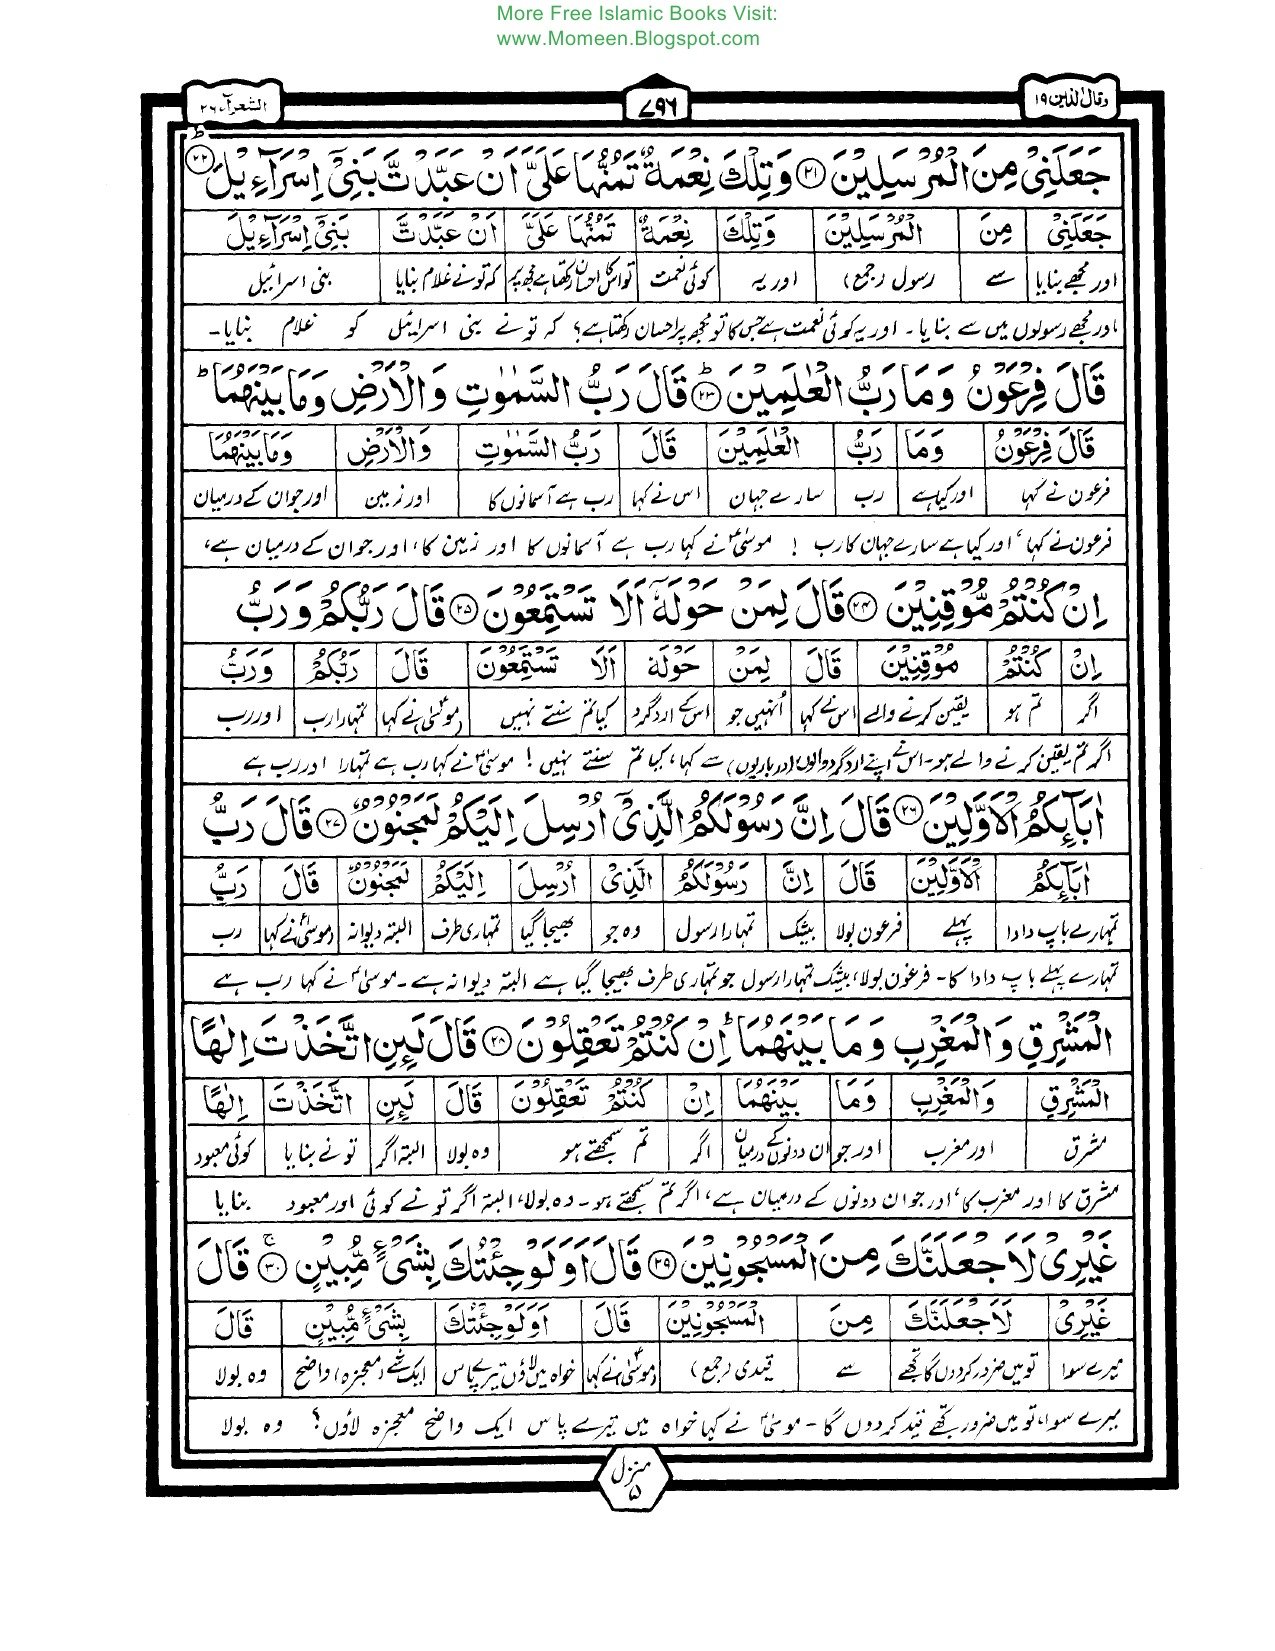 More Free Islamic Books Visit:
www.Momeen.Blogspot.com
وقال الذین ۱۹
۷۹۶
الشعرآء ۲۶
جَعَلَنِیْ مِنَ الْمُرْسَلِیْنَ ۲۱ وَتِلْكَ نِعْمَةٌ تَمُنُّهَا عَلَیَّ اَنْ عَبَّدْتَّ بَنِیْۤ اِسْرَآءِیْلَ ؕ ۲۲
جَعَلَنِیْ مِنَ الْمُرْسَلِیْنَ وَتِلْكَ نِعْمَةٌ تَمُنُّهَا عَلَیَّ اَنْ عَبَّدْتَّ بَنِیْۤ اِسْرَآءِیْلَ
اور مجھے بنایا سے رسول (جمع) اور یہ کوئی نعمت تو اس کا احسان رکھتا ہے مجھ پر کہ تونے غلام بنایا بنی اسرائیل
اور مجھے رسولوں میں سے بنایا۔ اور یہ کوئی نعمت ہے جس کا تو مجھ پر احسان رکھتا ہے؟ کہ تونے بنی اسرائیل کو غلام بنایا۔
قَالَ فِرْعَوْنُ وَمَا رَبُّ الْعٰلَمِیْنَ ؕ ۲۳ قَالَ رَبُّ السَّمٰوٰتِ وَالْاَرْضِ وَمَا بَیْنَهُمَا ؕ
قَالَ فِرْعَوْنُ وَمَا رَبُّ الْعٰلَمِیْنَ قَالَ رَبُّ السَّمٰوٰتِ وَالْاَرْضِ وَمَا بَیْنَهُمَا
فرعون نے کہا اور کیا ہے رب سارے جہان اس نے کہا رب ہے آسمانوں کا اور زمین اور جو ان کے درمیان
فرعون نے کہا، اور کیا ہے سارے جہان کا رب! موسیٰؑ نے کہا رب ہے آسمانوں کا اور زمین کا، اور جو ان کے درمیان ہے،
اِنْ كُنْتُمْ مُّوْقِنِیْنَ ۲۴ قَالَ لِمَنْ حَوْلَهٗۤ اَلَا تَسْتَمِعُوْنَ ۲۵ قَالَ رَبُّكُمْ وَرَبُّ
اِنْ كُنْتُمْ مُوْقِنِیْنَ قَالَ لِمَنْ حَوْلَهٗ اَلَا تَسْتَمِعُوْنَ قَالَ رَبُّكُمْ وَرَبُّ
اگر تم ہو یقین کرنے والے اس نے کہا اُنہیں جو اس کے اردگرد کیا تم سنتے نہیں (موسیٰؑ نے کہا) تمہارا رب اور رب
اگر تم یقین کرنے والے ہو۔ اس نے اپنے اردگرد والوں (درباریوں) سے کہا، کیا تم سنتے نہیں! موسیٰؑ نے کہا رب ہے تمہارا اور رب ہے
اٰبَآىِٕكُمُ الْاَوَّلِیْنَ ۲۶ قَالَ اِنَّ رَسُوْلَكُمُ الَّذِیْۤ اُرْسِلَ اِلَیْكُمْ لَمَجْنُوْنٌ ۲۷ قَالَ رَبُّ
اٰبَآىِٕكُمُ الْاَوَّلِیْنَ قَالَ اِنَّ رَسُوْلَكُمُ الَّذِیْ اُرْسِلَ اِلَیْكُمْ لَمَجْنُوْنٌ قَالَ رَبُّ
تمہارے باپ دادا پہلے فرعون بولا بیشک تمہارا رسول وہ جو بھیجا گیا تمہاری طرف البتہ دیوانہ (موسیٰؑ نے کہا) رب
تمہارے پہلے باپ دادا کا۔ فرعون بولا، بیشک تمہارا رسول جو تمہاری طرف بھیجا گیا ہے البتہ دیوانہ ہے۔ موسیٰؑ نے کہا رب ہے
الْمَشْرِقِ وَالْمَغْرِبِ وَمَا بَیْنَهُمَا ؕ اِنْ كُنْتُمْ تَعْقِلُوْنَ ۲۸ قَالَ لَىِٕنِ اتَّخَذْتَ اِلٰهًا
الْمَشْرِقِ وَالْمَغْرِبِ وَمَا بَیْنَهُمَا اِنْ كُنْتُمْ تَعْقِلُوْنَ قَالَ لَىِٕنِ اتَّخَذْتَ اِلٰهًا
مشرق اور مغرب اور جو ان دونوں کے درمیان اگر تم سمجھتے ہو وہ بولا البتہ اگر تو نے بنایا کوئی معبود
مشرق کا اور مغرب کا، اور جو ان دونوں کے درمیان ہے، اگر تم سمجھتے ہو۔ وہ بولا، البتہ اگر تو نے کوئی اور معبود بنایا
غَیْرِیْ لَاَجْعَلَنَّكَ مِنَ الْمَسْجُوْنِیْنَ ۲۹ قَالَ اَوَلَوْ جِئْتُكَ بِشَیْءٍ مُّبِیْنٍ ۚ ۳۰ قَالَ
غَیْرِیْ لَاَجْعَلَنَّكَ مِنَ الْمَسْجُوْنِیْنَ قَالَ اَوَلَوْ جِئْتُكَ بِشَیْءٍ مُّبِیْنٍ قَالَ
میرے سوا تو میں ضرور کردوں گا تجھے سے قیدی (جمع) (موسیٰؑ نے کہا) خواہ میں لاؤں تیرے پاس ایک شے (معجزہ) واضح وہ بولا
میرے سوا، تو میں ضرور تجھے قید کردوں گا۔ موسیٰؑ نے کہا خواہ میں تیرے پاس ایک واضح معجزہ لاؤں؟ وہ بولا
منزل ۵